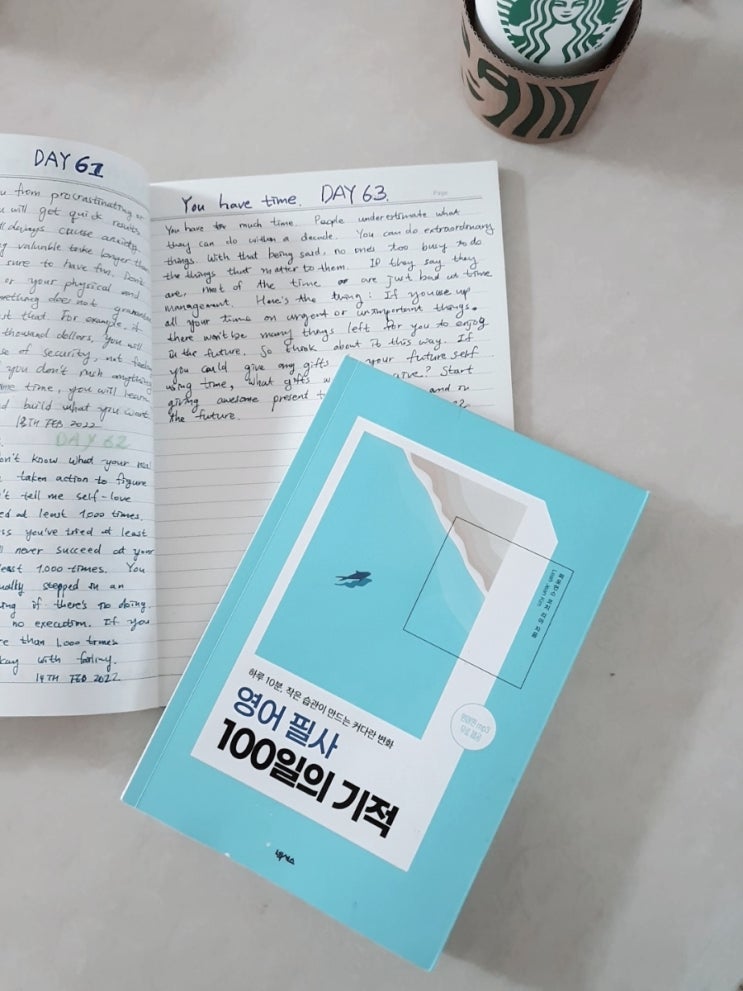 DAY 61
u from procrastinating or
u will get quick results
always cause anxiety.
valuable take longer than
sure to have fun. Don't
or your physical and
something does not
st that. For example, if
thousand dollars, you will
se of security, not
you don't rush anything
time, you will
d build what you want.
13TH FEB 2022
DAY 62
don't know what your real
taken action to figure
't tell me self-love
ed at least 1,000 times.
ss you've tried at least
ll never succeed at your
least 1,000 times. You
ually stepped in an
ing if there's no doing.
no execution. If you
re than 1,000 times
kay with
14TH FEB 2022
You have time. DAY 63.
Page
You have much time. People underestimate what
they can do within a decade. You can do extraordinary
things. With that being said, no one's too busy to do
the things that matter to them. If they say they
are, most of the time are just bad at time
management. Here's the thing: If you use up
all your time on urgent or unimportant things,
there won't be many things left for you to enjoy
in the future. So think about it this way. If
you could give any gifts your future self
using time, what gifts give? Start
giving awesome present and in
the future.
하루 10분, 작은 습관이 만드는 커다란 변화
영어 필사
100일의 기적
퍼포먼스 코치 리아 지음
Leah Jean Kim
원어민 mp3
무료 제공
넥서스